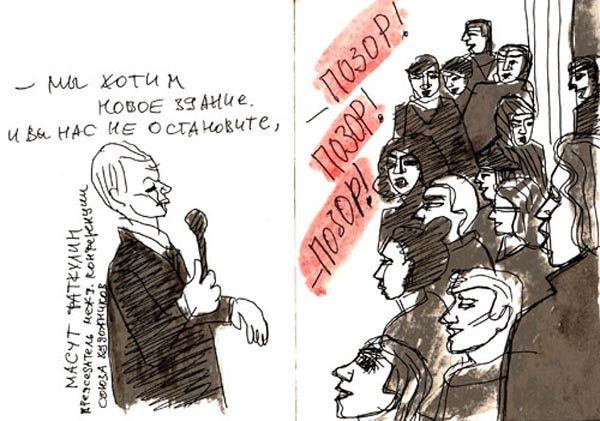 — МЫ ХОТИМ
НОВОЕ ЗДАНИЕ.
И ВЫ НАС НЕ ОСТАНОВИТЕ,
МАСУТ ФАТКУЛИН
ПРЕДСЕДАТЕЛЬ МЕЖД. КОНФЕДЕРАЦИИ
СОЮЗА ХУДОЖНИКОВ
— ПОЗОР!
— ПОЗОР!
— ПОЗОР!